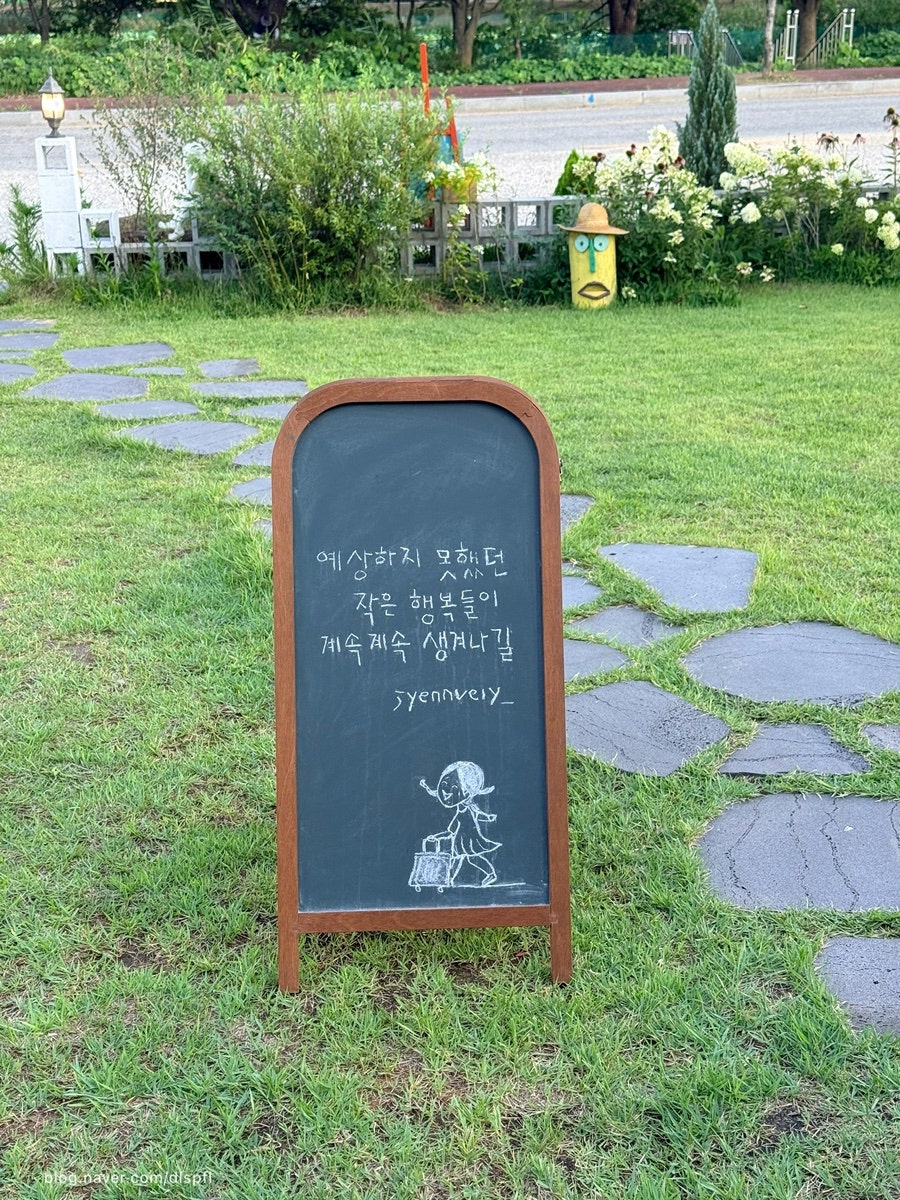 예상하지 못했던
작은 행복들이
계속계속 생겨나길
jyennvely_
blog.naver.com/dlspfl